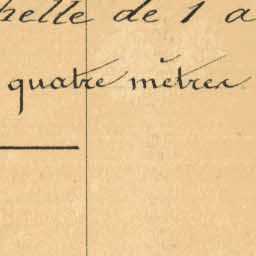 helle de 1 a
quatre mètres